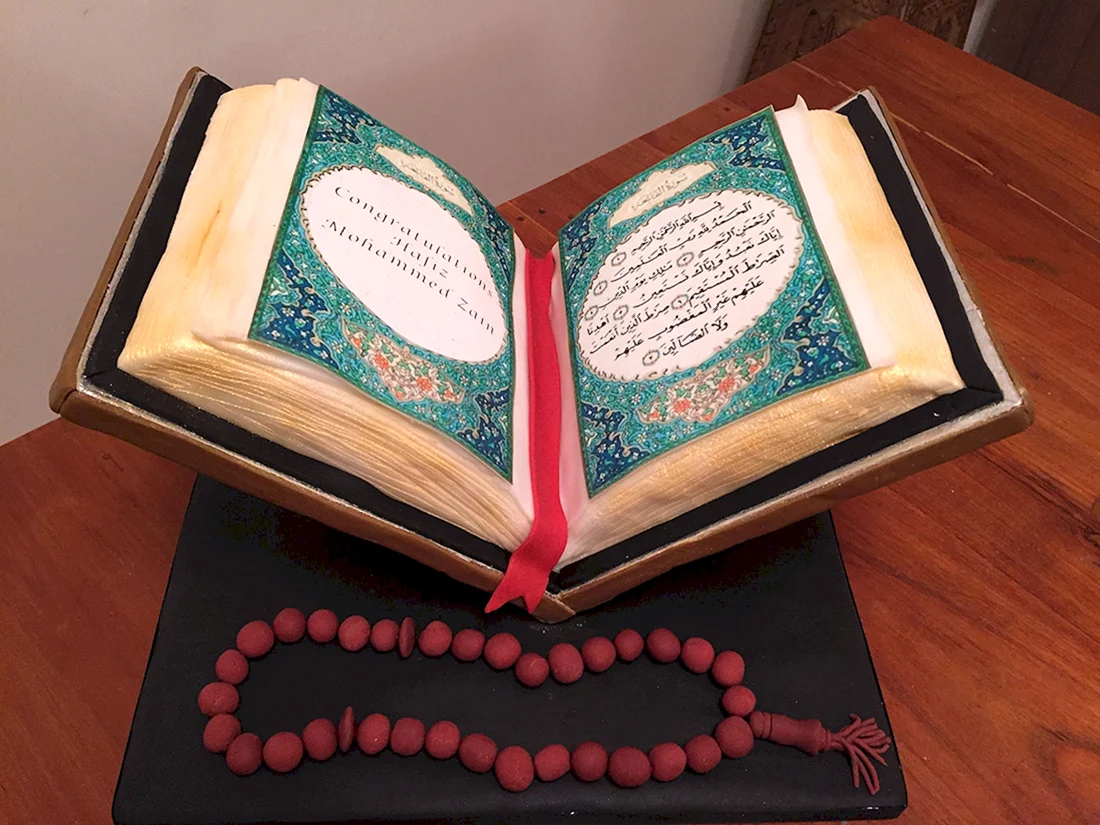 سورة الفاتحة
Congratulations
Hafiz
Mohammed Zain
سورة الفاتحة
بِسْمِ اللَّهِ الرَّحْمَٰنِ الرَّحِيمِ
الْحَمْدُ لِلَّهِ رَبِّ الْعَٰلَمِينَ
الرَّحْمَٰنِ الرَّحِيمِ مَٰلِكِ يَوْمِ الدِّينِ
إِيَّاكَ نَعْبُدُ وَإِيَّاكَ نَسْتَعِينُ اهْدِنَا
الصِّرَٰطَ الْمُسْتَقِيمَ صِرَٰطَ الَّذِينَ أَنْعَمْتَ
عَلَيْهِمْ غَيْرِ الْمَغْضُوبِ عَلَيْهِمْ
وَلَا الضَّالِّينَ